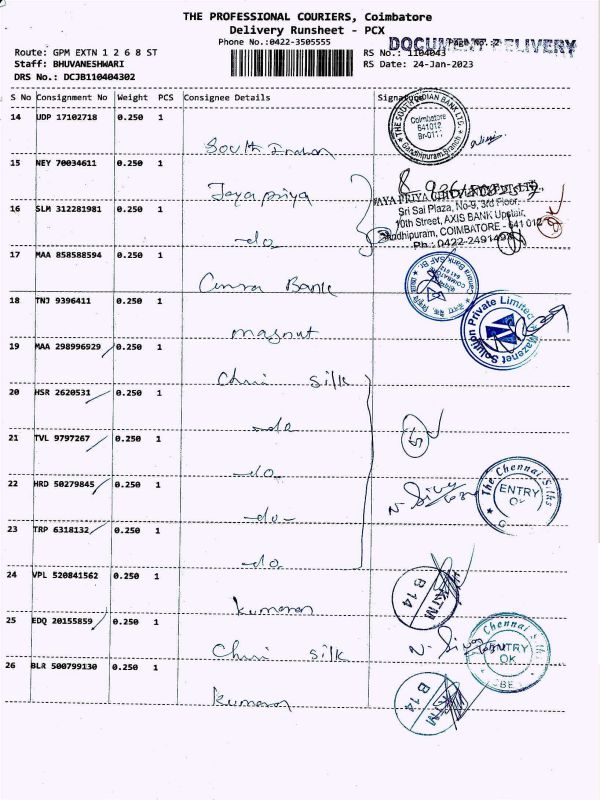 THE PROFESSIONAL COURIERS, Coimbatore
Delivery Runsheet - PCX
Phone No.:0422-3505555
DOCUMENT DELIVERY
Route: GPM EXTN 1 2 6 8 ST
RS No.: 1104043
Staff: BHUVANESHWARI
RS Date: 24-Jan-2023
DRS No.: DCJB110404302
S No Consignment No Weight PCS Consignee Details Signature
14 UDP 17102718 0.250 1
South Indian
THE SOUTH INDIAN BANK LTD.
Coimbatore
641012
Br-0117
Gandhipuram-Branch
15 NEY 70034611 0.250 1
Jayapriya
JAYA PRIYA
Sri Sai Plaza, No-9, 3rd Floor,
10th Street, AXIS BANK Upstair,
Gandhipuram, COIMBATORE - 641 012
16 SLM 312281981 0.250 1
do
17 MAA 858588594 0.250 1
Canra Bank
18 TNJ 9396411 0.250 1
magnut
Mazenet Solution Private Limited
19 MAA 298996929 0.250 1
Chni silk
20 HSR 2620531 0.250 1
do
21 TVL 9797267 0.250 1
do
22 HRD 50279845 0.250 1
-do-
The Chennai Silks
ENTRY
OK
23 TRP 6318132 0.250 1
do
24 VPL 520841562 0.250 1
kumaran
KTM
B 14
25 EDQ 20155859 0.250 1
Chni silk
Chennai Silks
ENTRY
OK
26 BLR 500799130 0.250 1
kumaran
KTM
B 14